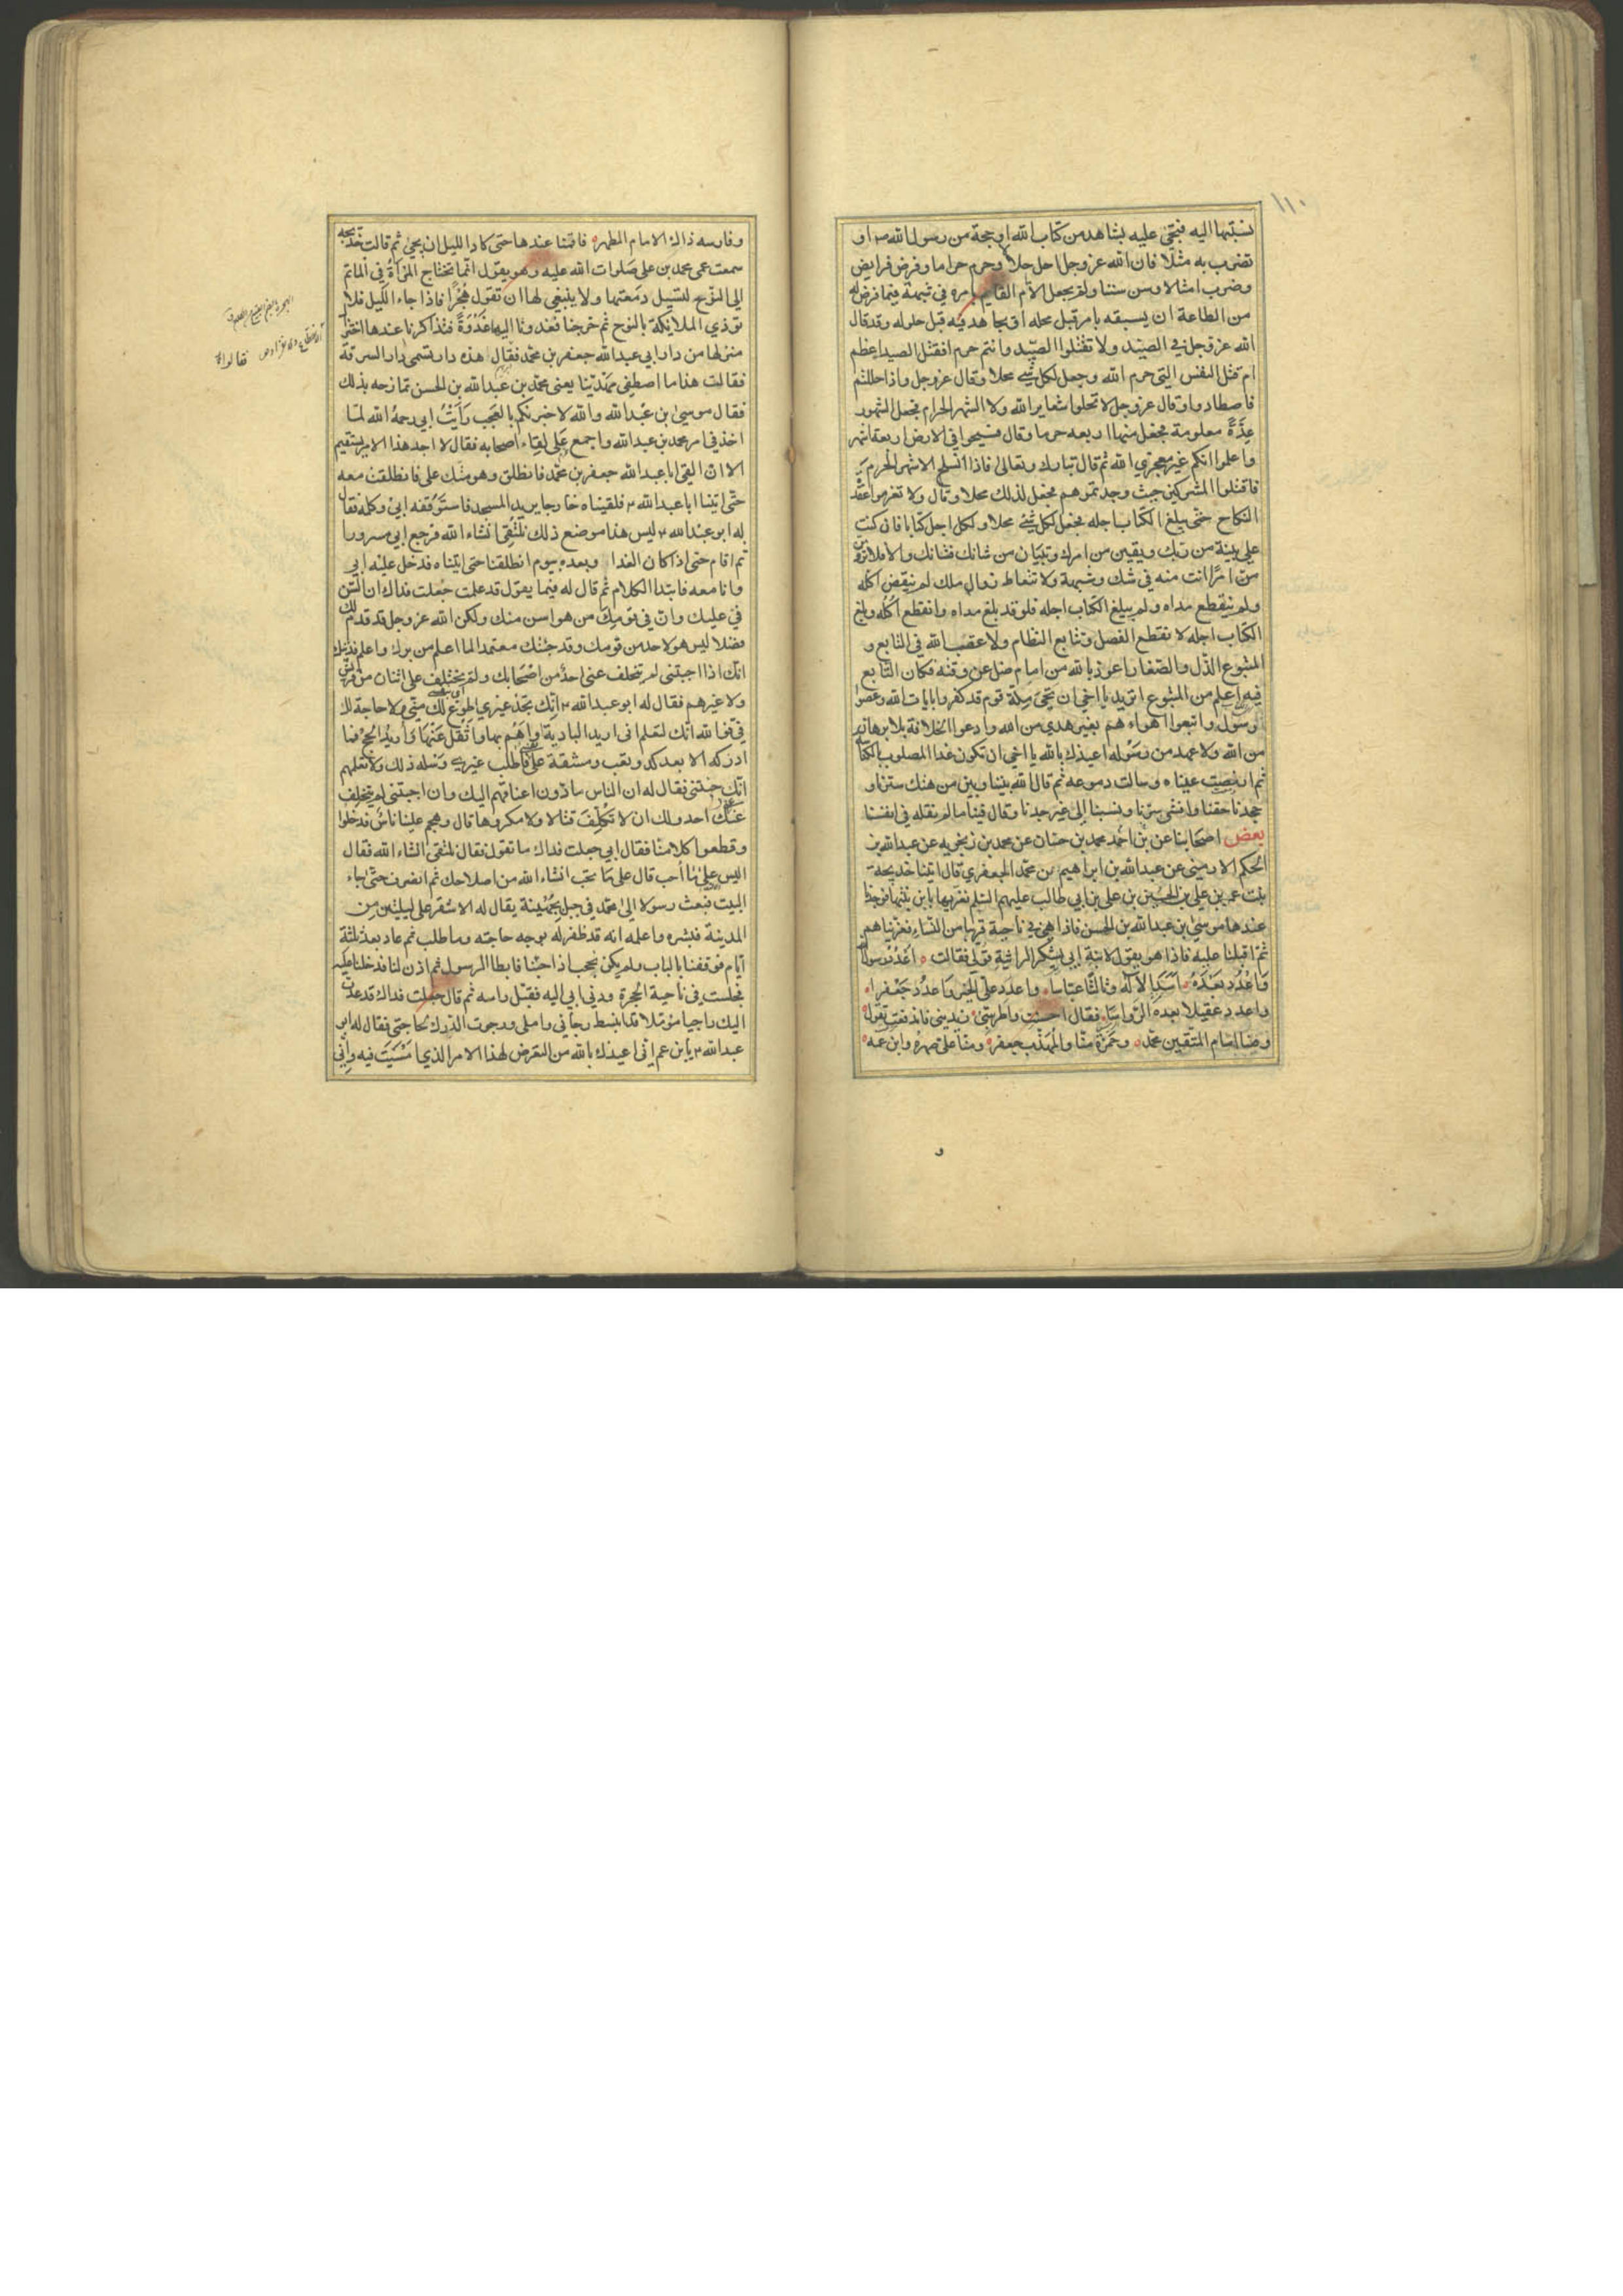 ١١٠
نسبتها اليه فتجئ عليه بشاهد من كتاب الله او حجة من رسول الله ص او
تضرب به مثلا فان الله عز وجل احل حلالا وحرم حراما وفرض فرايض
وضرب امثالا وسن سننا ولم يجعل الامام القايم بامره في شبهة فيما فرض له
من الطاعة ان يسبقه بامر قبل محله او يجاهد فيه قبل حلوله وقد قال
الله عز وجل في الصيد ولا تقتلوا الصيد وانتم حرم افقتل الصيد اعظم
ام قتل النفس التي حرم الله وجعل لكل شئ محلا وقال عز وجل واذا حللتم
فاصطادوا وقال عز وجل لا تحلوا شعاير الله ولا الشهر الحرام فجعل الشهور
عدة معلومة فجعل منها اربعه حرما وقال فسيحوا في الارض اربعة اشهر
واعلموا انكم غير معجزي الله ثم قال تبارك وتعالى فاذا انسلخ الاشهر الحرم
فاقتلوا المشركين حيث وجدتموهم فجعل لذلك محلا وقال ولا تعزموا عقدة
النكاح حتى يبلغ الكتاب اجله فجعل لكل شئ محلا ولكل اجل كتابا فان كنت
على بينة من ربك ويقين من امرك وتبيان من شانك فشانك والا فلا ترومن
امرا انت منه في شك وشبهة ولا تتعاط زوال ملك لم ينقض اكله
ولم ينقطع مداه ولم يبلغ الكتاب اجله فلو قد بلغ مداه وانقطع اكله وبلغ
الكتاب اجله لانقطع الفصل وتتابع النظام ولاعقب الله في التابع و
المتبوع الذل والصغار اعوذ بالله من امام ضل عن وقته فكان التابع
فيه اعلم من المتبوع اتريد يا اخي ان تحيي ملة قوم قد كفروا بايات الله وعصوا
رسوله واتبعوا اهواءهم بغير هدى من الله وادعوا الخلافة بلا برهان
من الله ولا عهد من رسوله اعيذك بالله يا اخي ان تكون غدا المصلوب بالكناسة
ثم ارفضت عيناه وسالت دموعه ثم قال الله بيننا وبين من هتك سترنا و
جحدنا حقنا وافشى سرنا ونسبنا الى غير جدنا وقال فينا ما لم نقله في انفسنا
بعض اصحابنا عن محمد بن حسان عن محمد بن زنجويه عن عبد الله بن
الحكم الارمني عن عبد الله بن ابراهيم بن محمد الجعفري قال اتينا خديجة
بنت عمر بن علي بن الحسين بن علي بن ابي طالب عليهم السلم نعزيها بابن بنتها فوجدنا
عندها موسى بن عبد الله بن الحسن فاذا هي في ناحية قريبا من النساء فعزيناهم
ثم اقبلنا عليه فاذا هو يقول لابنة ابي يشكر الراثية قولي فقالت ه اعدد رسول الله
واعدد بعده اسد الاله وثالثا عباسا ه واعدد علي الخير واعدد جعفرا ه
واعدد عقيلا بعده الرواسا ه فقال احسنت واطربتني زيديني فاندفعت تقول ه
ومنا امام المتقين محمد ه وحمزة منا والمهذب جعفر ه ومنا علي صهره وابن عمه ه
و
وفارسه ذاك الامام المطهر ه فاقمنا عندها حتى كاد الليل ان يجئ ثم قالت خديجه
سمعت عمي محمد بن علي صلوات الله عليه وهو يقول انما تحتاج المراة في الماتم
الى النوح لتسيل دمعتها ولا ينبغي لها ان تقول هجرا فاذا جاء الليل فلا
توذي الملايكة بالنوح ثم خرجنا فغدونا اليها غدوة فتذاكرنا عندها اختزال
منزلها من دار ابي عبد الله جعفر بن محمد فقال هذه دار تسمى دار السرقة
فقالت هذا ما اصطفى مهدينا يعني محمد بن عبد الله بن الحسن تمازحه بذلك
فقال موسى بن عبد الله والله لاخبرنكم بالعجب رايت ابي رحمه الله لما
اخذ في امر محمد بن عبد الله واجمع على لقاء اصحابه فقال لا اجد هذا الامر يستقيم
الا ان القى ابا عبد الله جعفر بن محمد فانطلق وهو متك علي فانطلقت معه
حتى اتينا ابا عبد الله ع فلقيناه خارجا يريد المسجد فاستوقفه ابي وكلمه فقال
له ابو عبد الله ع ليس هذا موضع ذلك نلتقي انشاء الله فرجع ابي مسرورا
ثم اقام حتى اذا كان الغد او بعده بيوم انطلقنا حتى اتيناه فدخل عليه ابي
وانا معه فابتدا الكلام ثم قال له فيما يقول قد علمت جعلت فداك ان السن
لي عليك وان في قومك من هو اسن منك ولكن الله عز وجل قد قدم لك
فضلا ليس هو لاحد من قومك وقد جئتك معتمدا لما اعلم من برك واعلم فديتك
انك اذا اجبتني لم يتخلف عني احد من اصحابك ولم يختلف علي اثنان من قريش
ولا غيرهم فقال له ابو عبد الله ع انك تجد غيري اطوع لك مني ولا حاجة لك
في فوالله انك لتعلم اني اريد البادية او اهم بها واثقل عنها واريد الحج فما
ادركه الا بعد كد وتعب ومشقة على نفسي فاطلب غيري وسله ذلك ولا تعلمهم
انك جئتني فقال له ان الناس مادون اعناقهم اليك وان اجبتني لم يتخلف
عني احد ولك ان لا تكلف قتالا ولا مكروها قال وهجم علينا ناس فدخلوا
وقطعوا كلامنا فقال ابي جعلت فداك ما تقول فقال نلتقي انشاء الله فقال
اليس على ما احب قال على ما تحب انشاء الله من اصلاحك ثم انصرف حتى جاء
البيت فبعث رسولا الى محمد في جبل بجهينة يقال له الاشقر على ليلتين من
المدينة فبشره واعلمه انه قد ظفر له بوجه حاجته وما طلب ثم عاد بعد ثلثة
ايام فوقفنا بالباب ولم نكن نحجب اذا جئنا فابطا الرسول ثم اذن لنا فدخلنا عليه
فجلست في ناحية الحجرة ودنى ابي اليه فقبل راسه ثم قال جعلت فداك قد عدت
اليك راجيا مؤملا قد انبسط رجائي واملي ورجوت الدرك لحاجتي فقال له ابو
عبد الله ع يا بن عم اني اعيذك بالله من التعرض لهذا الامر الذي امسيت فيه واني